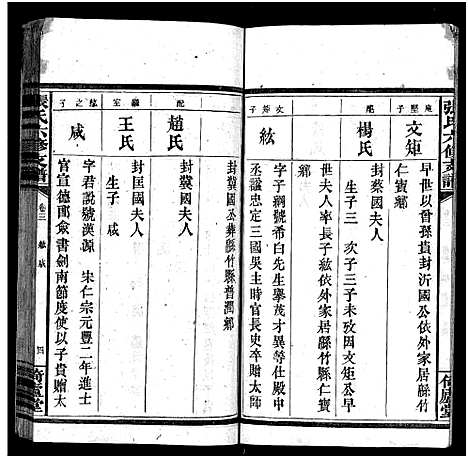 張氏六修支譜
庭堅子
文矩
早世以曾孫貴封沂國公依外家居緜竹
仁賓鄉
配
楊氏
封蔡國夫人
生子三 次子三子未攷因文矩公早
世夫人率長子紘依外家居緜竹仁賓
鄉
文矩子
紘
字子綱號希白先生擧茂才異等仕殿中
丞諡忠定三國吳主時官長史卒贈太師
倚廬堂
封冀國公葬緜竹縣普潤鄉
配
趙氏
封冀國夫人
繼室
王氏
封匡國夫人
生子 咸
紘之子
咸
字君說號漢源 宋仁宗元豐二年進士
官宣德郎僉書劍南節度使以子貴贈太
張氏六修支譜
卷三
紘 咸
四
倚廬堂